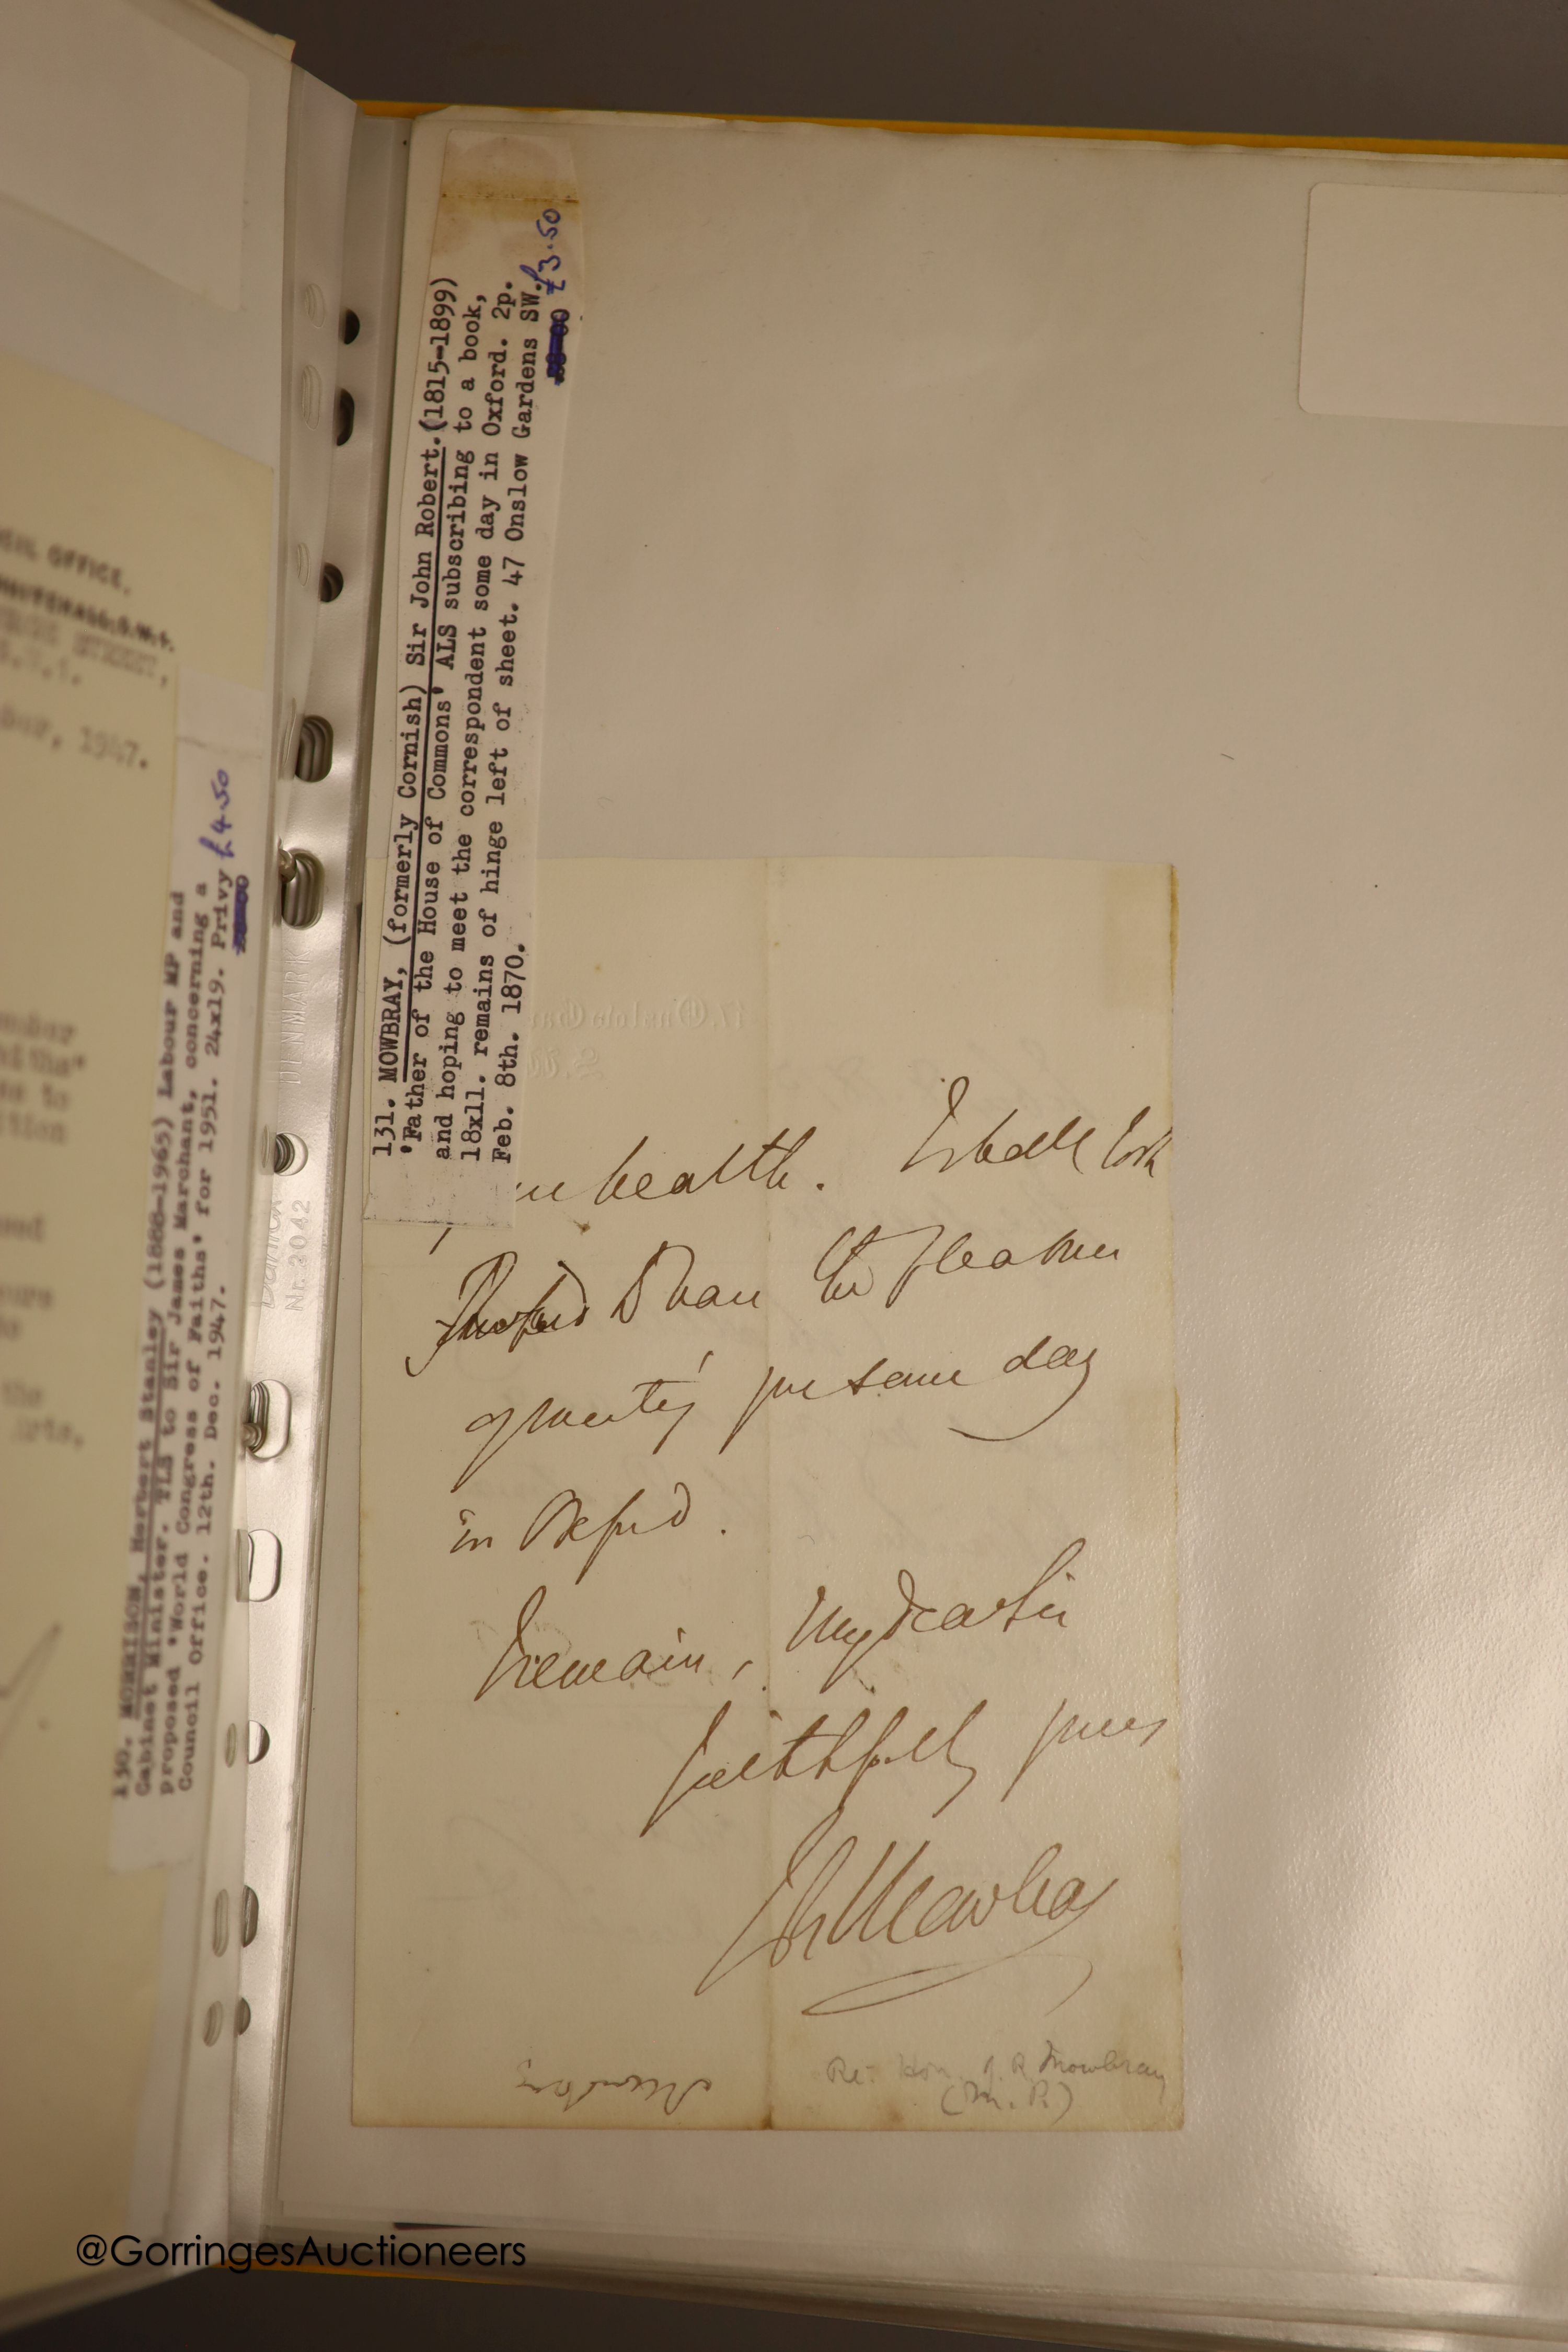 OFFICE.
WHITEHALL, S.W.1.
STREET,
S.W.1.
1947.
130. MORRISON, Herbert Stanley (1888-1965) Labour MP and
Cabinet Minister. TLS to Sir James Marchant, concerning a
proposed 'World Congress of Faiths' for 1951. 24x19. Privy
Council Office. 12th. Dec. 1947.
£4.50
131. MOWBRAY, (formerly Cornish) Sir John Robert. (1815-1899)
'Father of the House of Commons' ALS subscribing to a book,
and hoping to meet the correspondent some day in Oxford. 2p.
18x11. remains of hinge left of sheet. 47 Onslow Gardens SW.
Feb. 8th. 1870.
£3.50
DENMARK
Nr. 2042
47. Onslow
S.W.
health. I shall look
forward to the pleasure
of meeting you some day
in Oxford.
I remain, My dear Sir
faithfully yours
J R Mowbray
Mowbray
Rt. Hon. J. R. Mowbray
(M.P.)
@GorringesAuctioneers